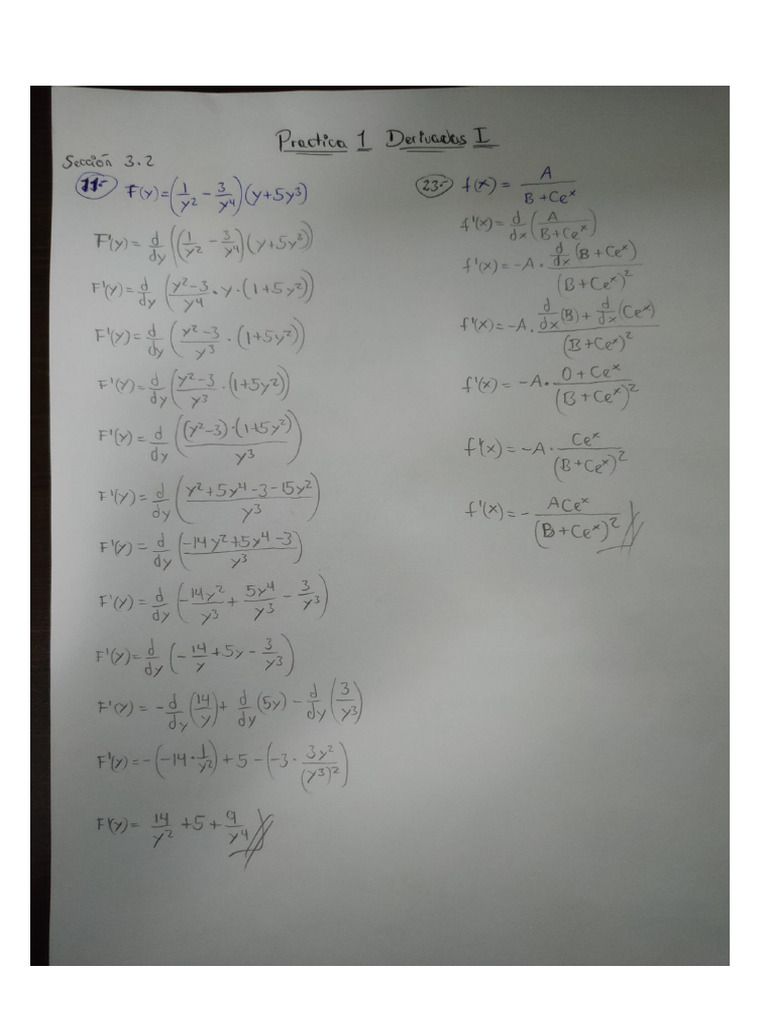 Practica 1 Derivadas I
Sección 3.2
11.- F(y)=(1/y² - 3/y⁴)(y+5y³)
F'(y)= d/dy ((1/y² - 3/y⁴)(y+5y²))
F'(y)= d/dy (y²-3/y⁴ · y · (1+5y²))
F'(y)= d/dy (y²-3/y³ · (1+5y²))
F'(y)= d/dy (y²-3/y³ · (1+5y²))
F'(y)= d/dy ((y²-3)·(1+5y²)/y³)
F'(y)= d/dy (y²+5y⁴-3-15y²/y³)
F'(y)= d/dy (-14y²+5y⁴-3/y³)
F'(y)= d/dy (-14y²/y³ + 5y⁴/y³ - 3/y³)
F'(y)= d/dy (-14/y +5y - 3/y³)
F'(y) = - d/dy (14/y) + d/dy (5y) - d/dy (3/y³)
F'(y)= -(-14 · 1/y²) + 5 - (-3 · 3y²/(y³)²)
F'(y)= 14/y² + 5 + 9/y⁴
23.- f(x) = A/B+Ceˣ
f'(x)= d/dx (A/B+Ceˣ)
f'(x)= -A · d/dx (B+Ceˣ)/(B+Ceˣ)²
f'(x)= -A · d/dx (B) + d/dx (Ceˣ)/(B+Ceˣ)²
f'(x)= -A · 0+Ceˣ/(B+Ceˣ)²
f'(x)= -A · Ceˣ/(B+Ceˣ)²
f'(x)= - ACeˣ/(B+Ceˣ)²